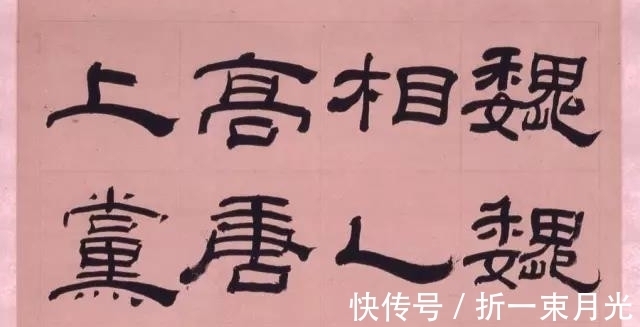 魏魏
相人
高唐
上黨
快传号 / 折一束月光